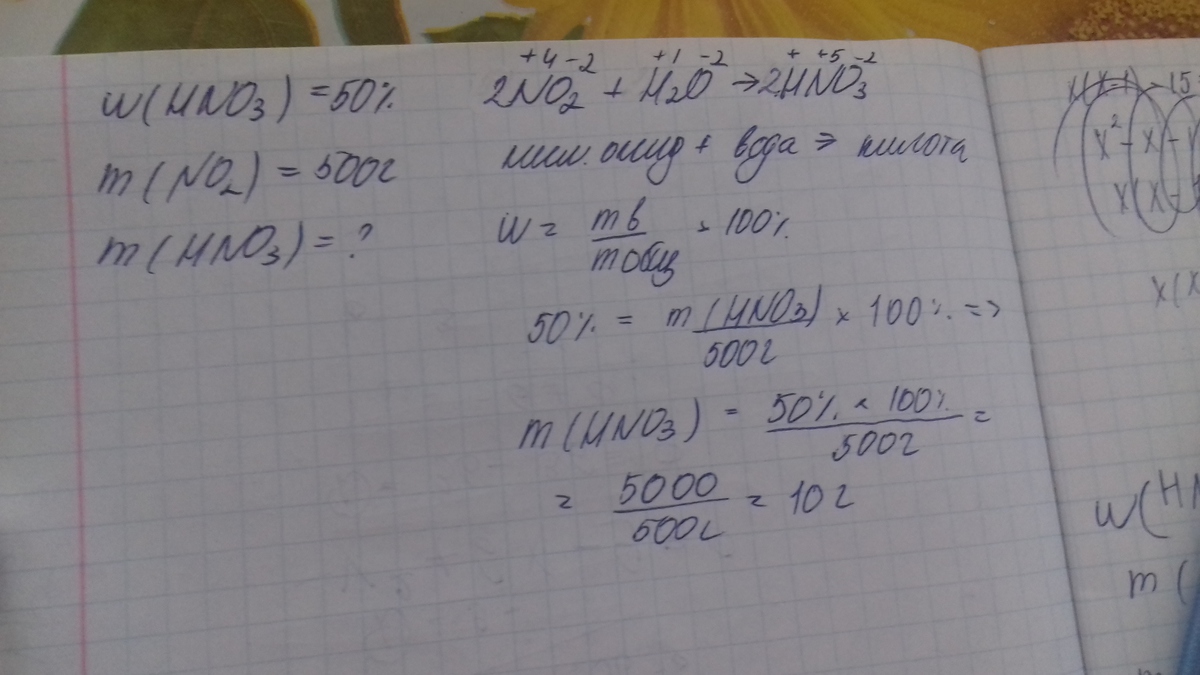 w(HNO3) = 50%
m(NO2) = 500г
m(HNO3) = ?
+4 -2 +1 -2 + +5 -2
2NO2 + H2O → 2HNO3
оксид + вода ⇒ кислота
w = mв / mобщ × 100%
50% = m(HNO3) / 500г × 100% =>
m(HNO3) = 50% × 100% / 500г =
= 5000 / 500г = 10г
15
x² - x -
x(x -
x(x
w(HN
m(